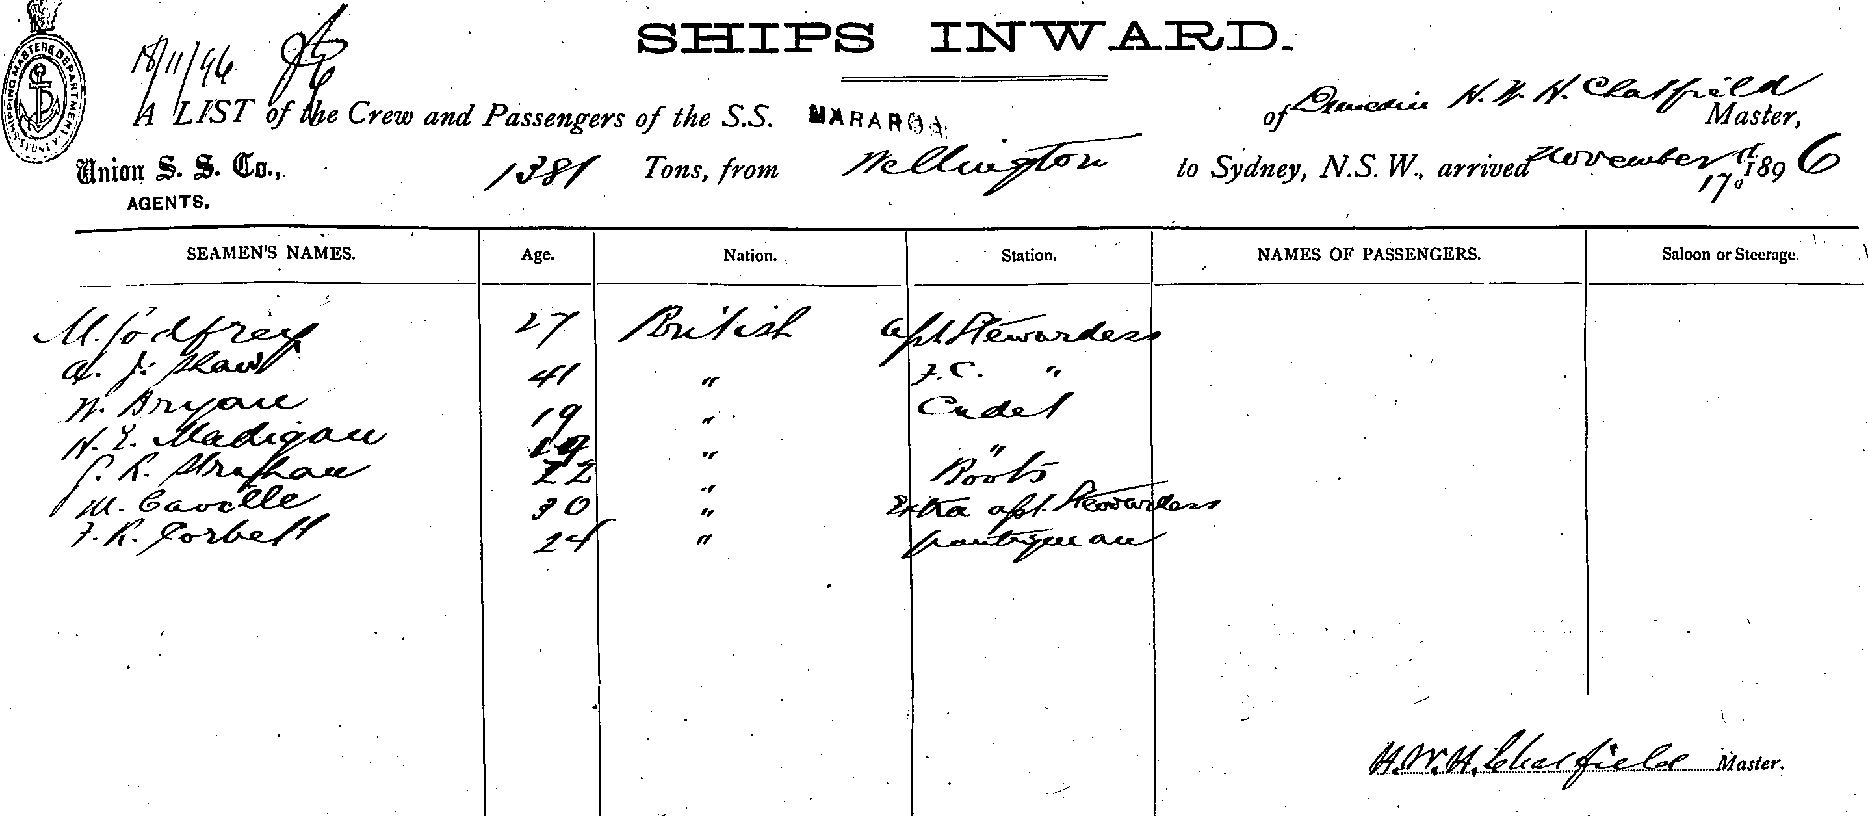 SHIPS INWARD.
18/11/96
SHIPPING MASTERS DEPARTMENT
A LIST of the Crew and Passengers of the S.S. MARAROA of Dunedin H. W. H. Chatfield Master,
Union S. S. Co., 1381 Tons, from Wellington to Sydney, N.S.W., arrived November 17d 1896
AGENTS.
SEAMEN'S NAMES. Age. Nation. Station. NAMES OF PASSENGERS. Saloon or Steerage.
M. Godfrey 27 British aft Stewardess
A. J. Shaw 41 " F.C. "
W. Bryan 19 " Cadet
H. E. Madigan 19 " "
G. R. Strahan 22 " Boots
M. Cavelle 30 " Extra aft. Stewardess
F. R. Corbett 24 " pantryman
H. W. H. Chatfield Master.